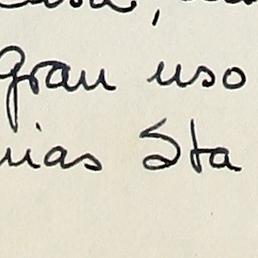 gran uso
nias Sta